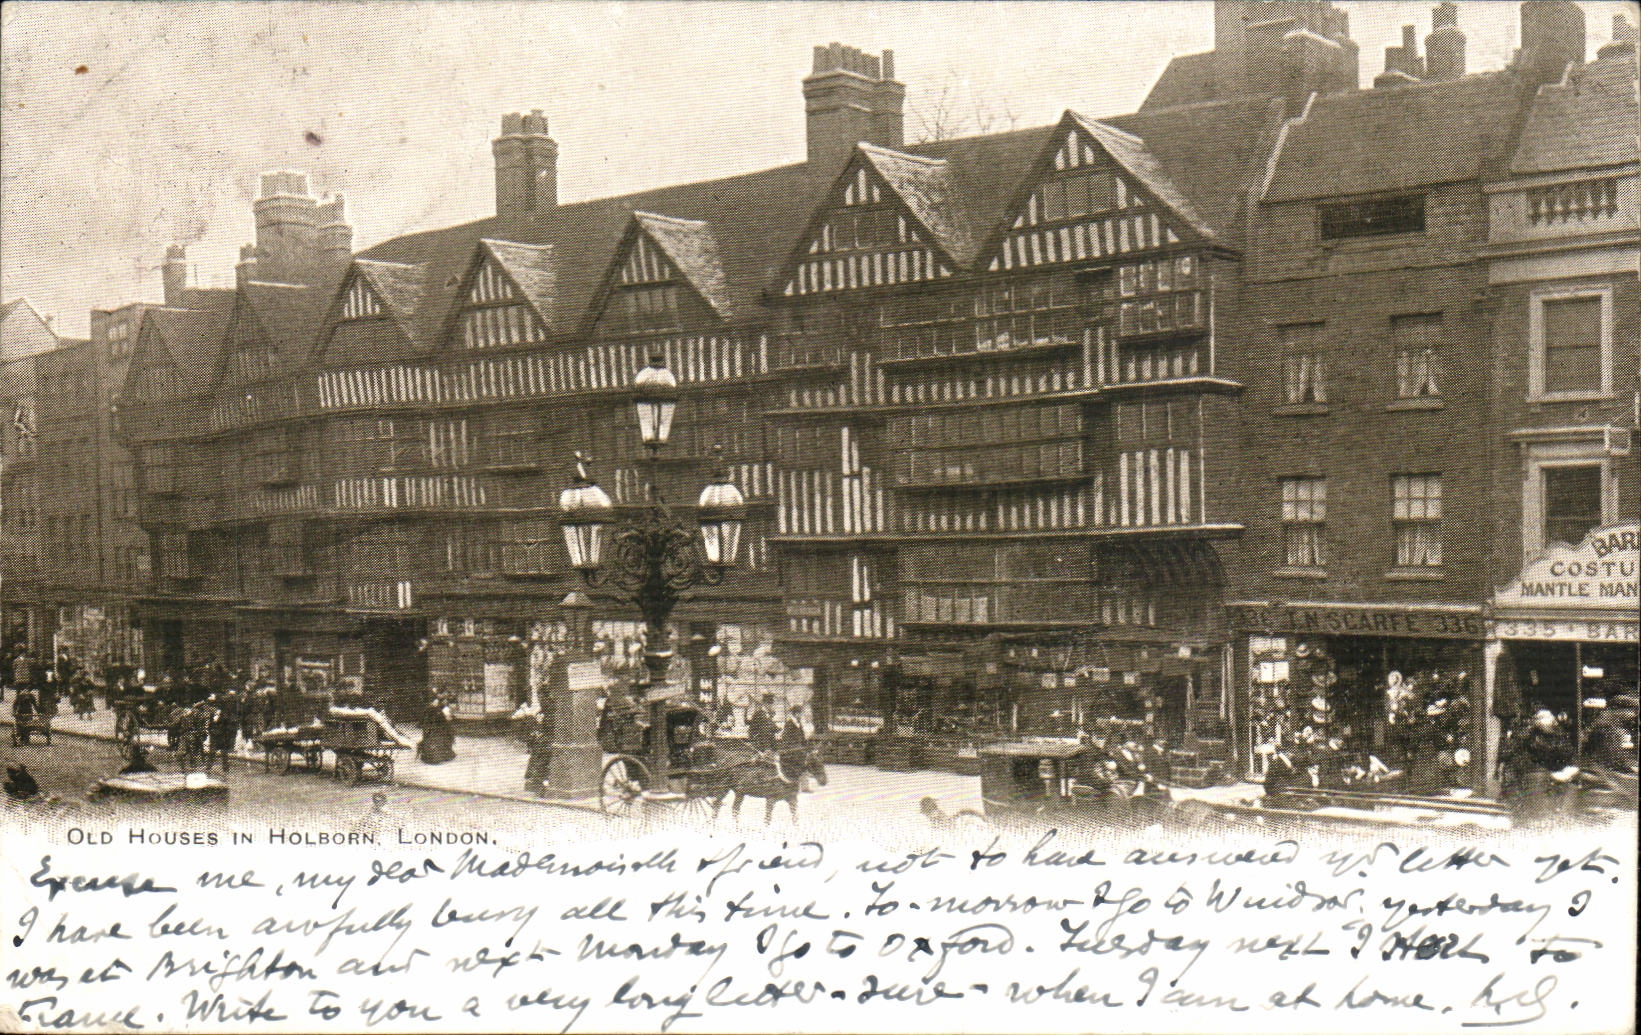 BAR
COSTU
MANTLE MAN
336 T.N. SCARFE 336
335 BAR
OLD HOUSES IN HOLBORN, LONDON.
Excuse me, my dear Mademoiselle & friend, not to have answered yr letter yet.
I have been awfully busy all this time. To-morrow I go to Windsor. yesterday I
was at Brighton and next Monday I go to Oxford. Tuesday next I start to
France. Write to you a very long letter - sure - when I am at home.